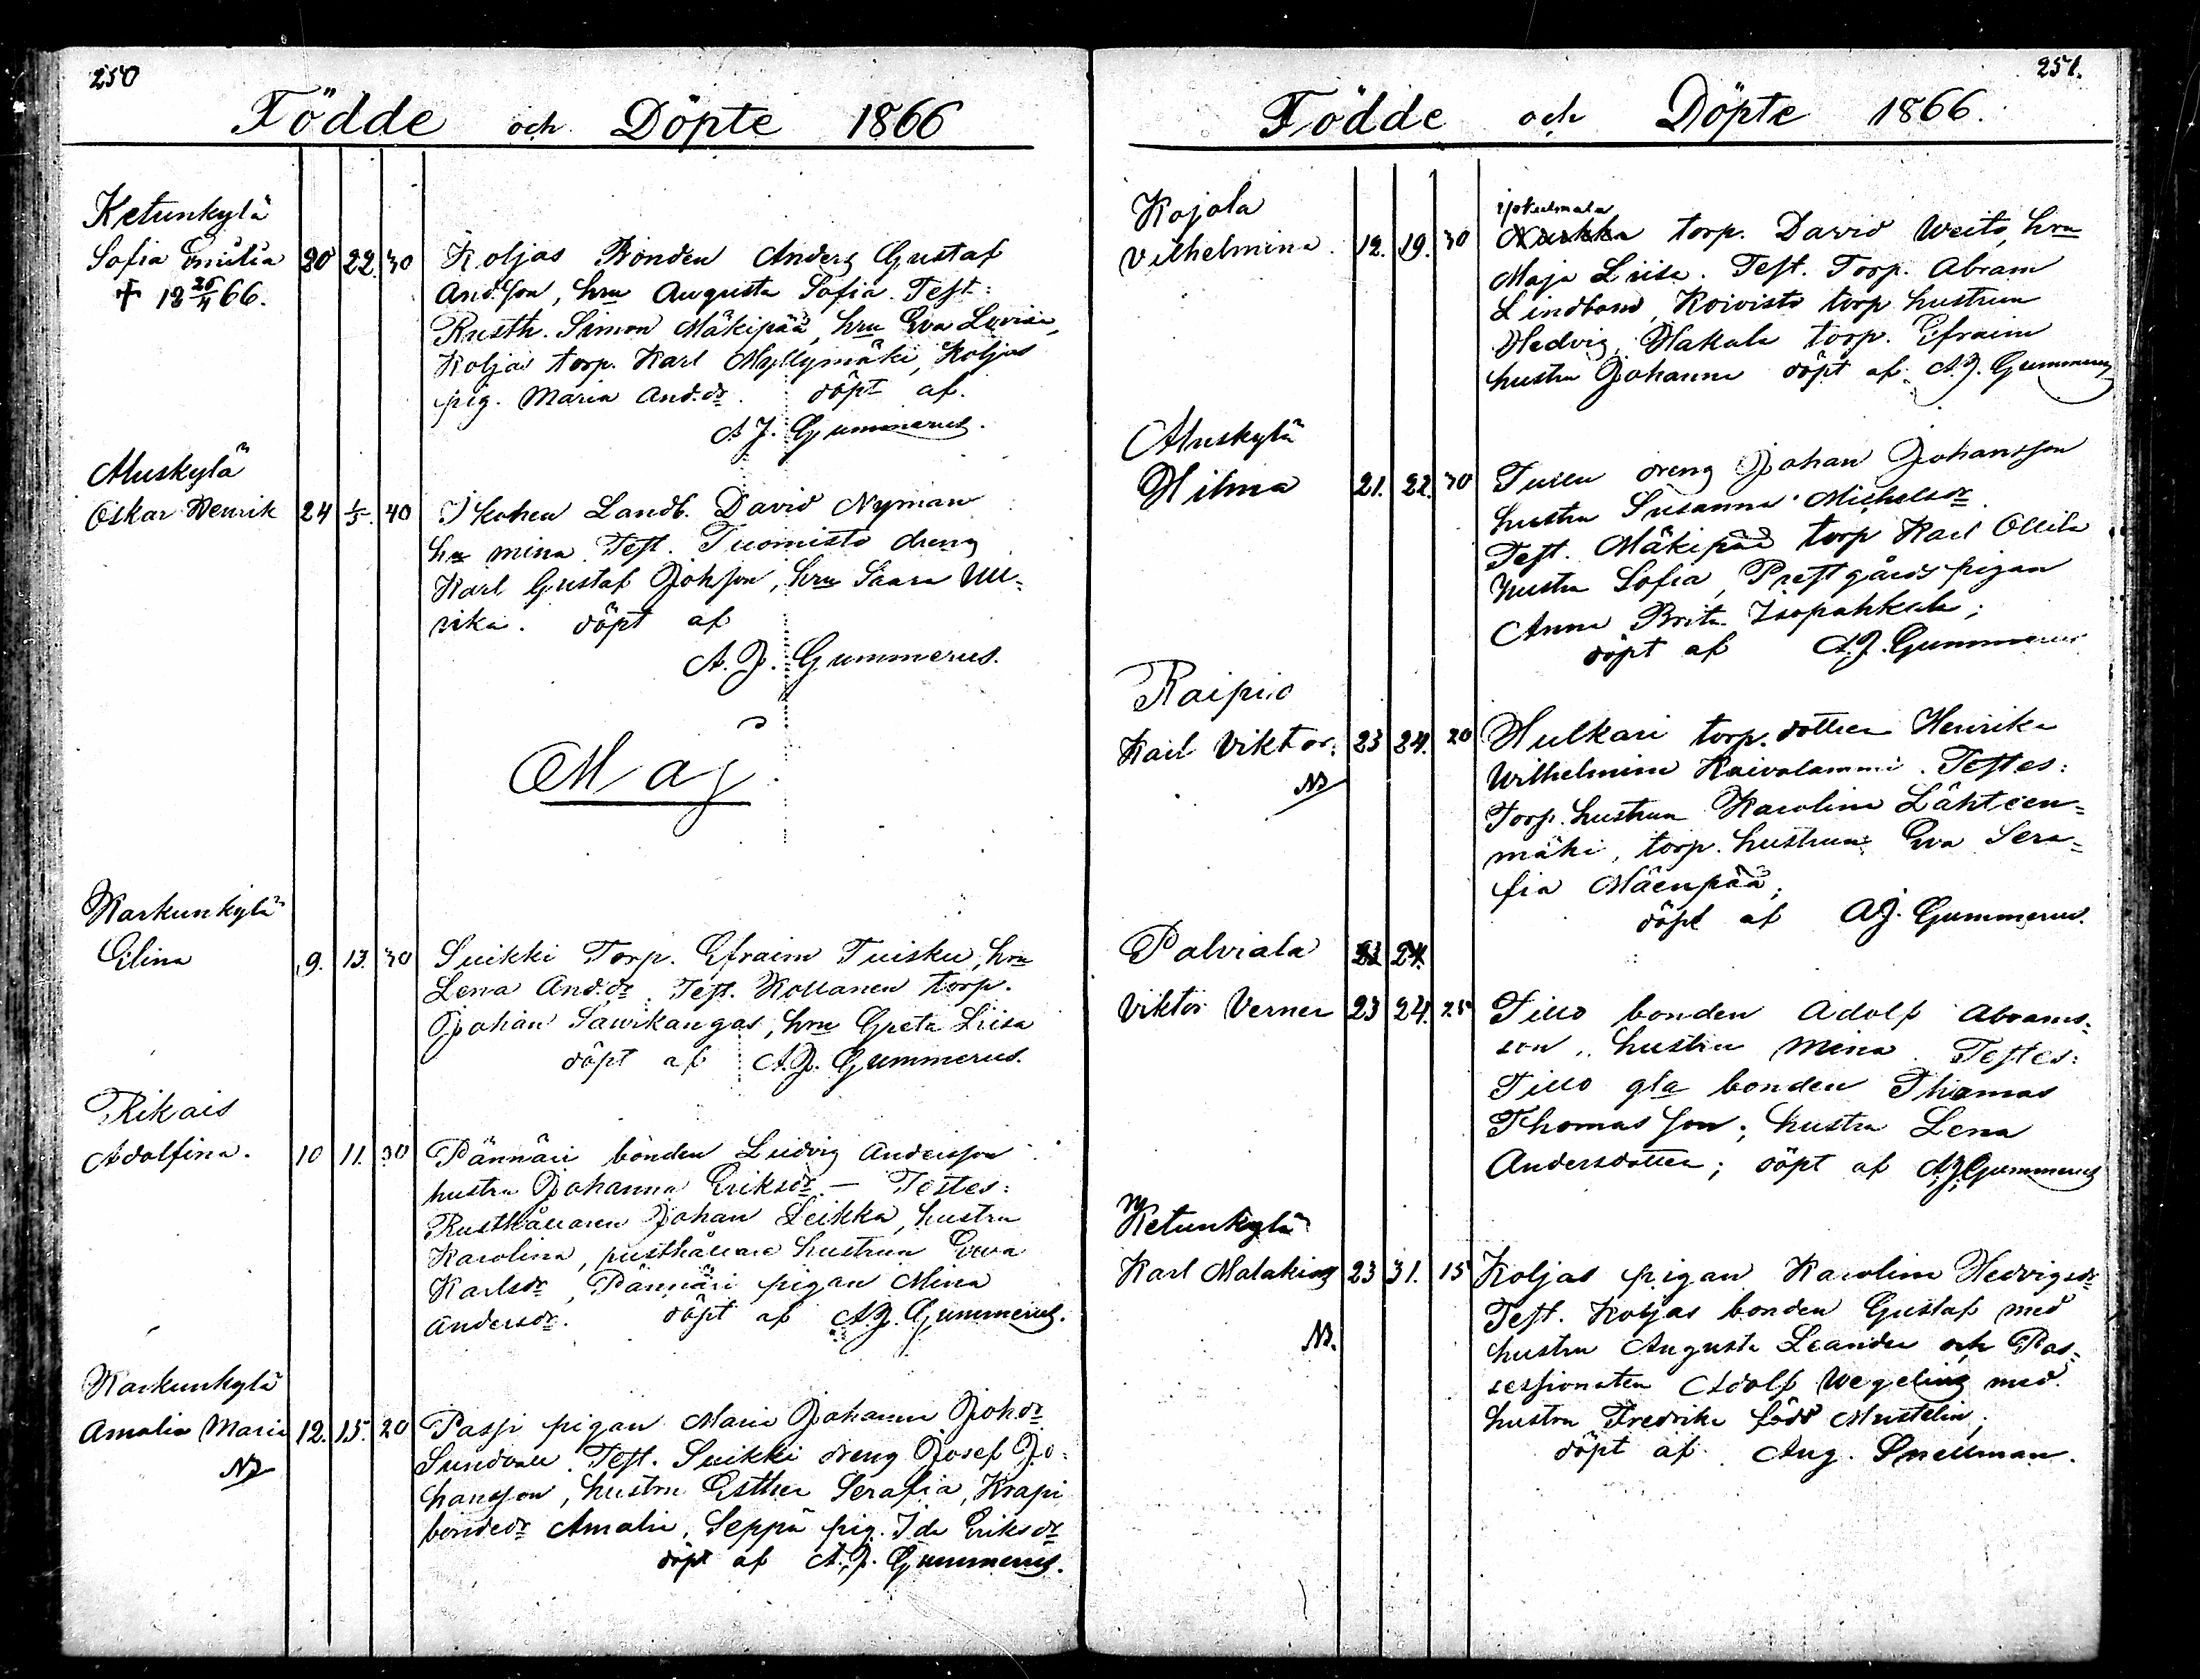 250
Födde och Döpte 1866
Ketunkylä
Sofia Emilia 20 22. 30 Koljas Bonden Anders Gustaf
† 18 25/4 66. And:son, hru Augusta Sofia. Test:
Rusth. Simon Mäkipää, hru Eva Lovisa,
Koljas torp. Karl Myllymäki, Koljas
pig. Maria And.dr. döpt af.
A J. Gummerus.
Aluskylä
Oskar Henrik 24 1/5. 40 Ikohen Landb. David Nyman
hru mina. Test. Tuomisto dreng
Karl Gustaf Johsson, hru Saara Ul-
rika. döpt af
A. J. Gummerus.
Maj
Karkunkylä
Elina 9. 13. 30 Suikki Torp. Efraim Tuisku, hru
Lena And.dr. Test. Kollanen torp.
Johan Saurikangas, hru Greta Liisa
döpt af A.J. Gummerus.
Rikais
Adolfina. 10 11. 30 Pännäri bonden Ludvig Andersson
hustru Johanna Eriksdr. — Testes:
Rusthållaren Johan Leikka, hustru
Karolina, rusthållare hustrun Eva
Karlsdr, Pännäri pigan Mina
Andersdr. döpt af A.J. Gummerus.
Karkunkylä
Amalia Maria 12. 15. 20 Passi pigan Maria Johanna Johdr
Nb Sundvall. Test. Suikki dreng Josef Jo-
hansson, hustru Esther Serafia, Krapi
bondedr Amalia, Seppä pig. Ida Eriksdr
döpt af A. J. Gummerus.
251.
Födde och Döpte 1866.
Kojola
Vilhelmina. 12. 19. 30 torp. David Weito, hru
Maja Liisa. Test. Torp. Abram
Lindbom, Koivisto torp hustrun
Hedvig, Hakala torp. Efraim
hustru Johanna döpt af A.J. Gummerus
Aluskylä
Hilma 21. 22. 30 Tuiln dreng Johan Johansson
hustru Susanna Michelsdr.
Test. Mäkipää torp Karl Ollila
hustru Sofia, Prestgårds pigan
Anna Brita Isopahkala;
döpt af A.J. Gummerus
Raipio
Karl Viktor. 23 24. 20 Hulkari torp. dottren Henrika
Nb Wilhelmina Kaivolammi. Testes:
Torp. hustrun Karolina Lähteen-
mäki, torp. hustrun Eva Sera-
fia Mäenpää;
döpt af AJ. Gummerus.
Palviala 23 24.
Viktor Verner 23 24. 25 Tillo bonden Adolf Abrams-
son, hustru Mina. Testes:
Tillo gla bonden Thomas
Thomasson; hustru Lena
Andersdotter; döpt af A.J. Gummerus
Ketunkylä
Karl Malakias 23 31. 15 Koljas pigan Karolina Hedvigsdr
Nb. Test. Koljas bonden Gustaf med
hustru Augusta Leander och Pos-
sessionaten Adolf Wegelius med
hustru Fredrika född Mustelin;
döpt af. Aug. Snellman.